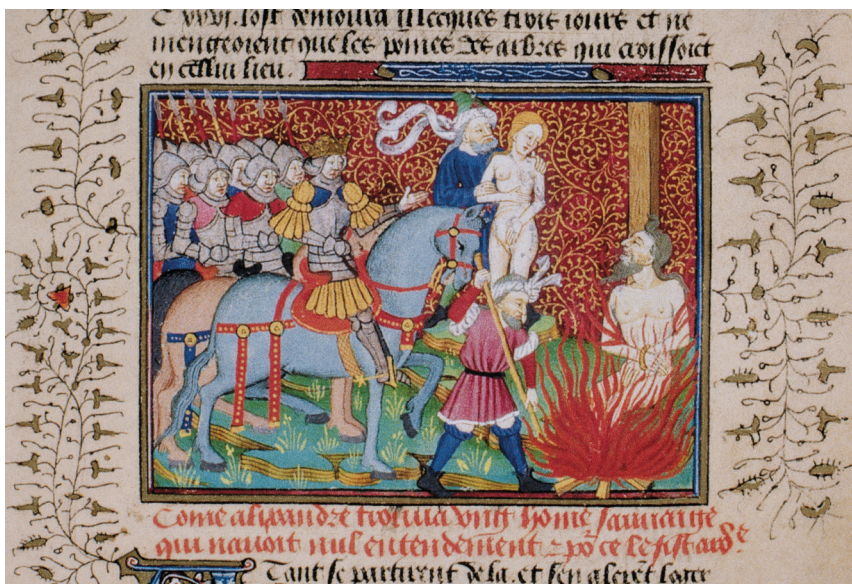 C xxvi. lost demoura illecques trois iours et ne
mengeoient que les pomes des arbres qui croissoiēt
en cellui lieu.
Come alixandre trouua vng hōme sauuaige
qui nauoit nul entendement z po ce le fist ard
Tant se partirent de la. et sen alerēt loger